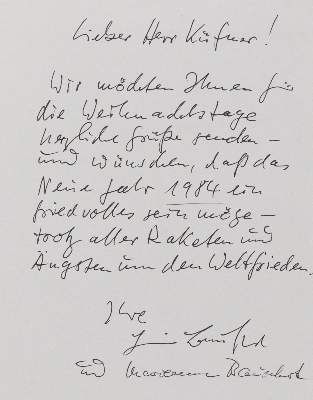 Lieber Herr Küfner!
Wir möchten Ihnen für
die Weihnachtstage
herzliche Grüße senden –
und wünschen, daß das
Neue Jahr 1984 ein
friedvolles sein möge –
trotz aller Raketen und
Ängsten um den Weltfrieden.
Ihre
und Marianne